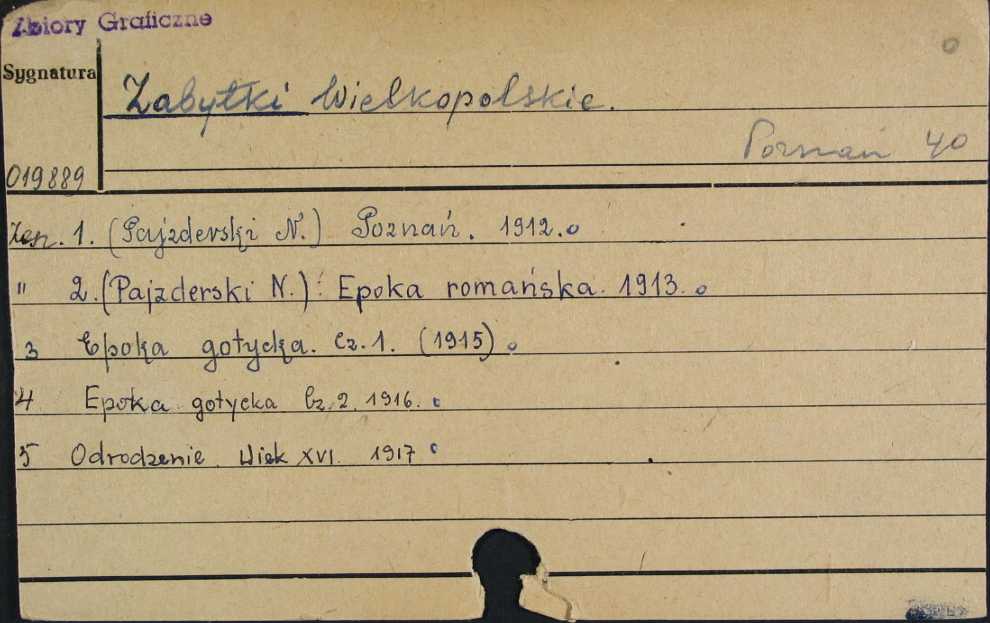 Zbiory Graficzne
Sygnatura
Zabytki Wielkopolskie.
Poznań 40
019889
Zesz. 1. (Pajzderski N.) Poznań. 1912.
" 2. (Pajzderski N.): Epoka romańska. 1913.
3 Epoka gotycka. Cz. 1. (1915)
4 Epoka gotycka Cz. 2. 1916.
5 Odrodzenie. Wiek XVI. 1917